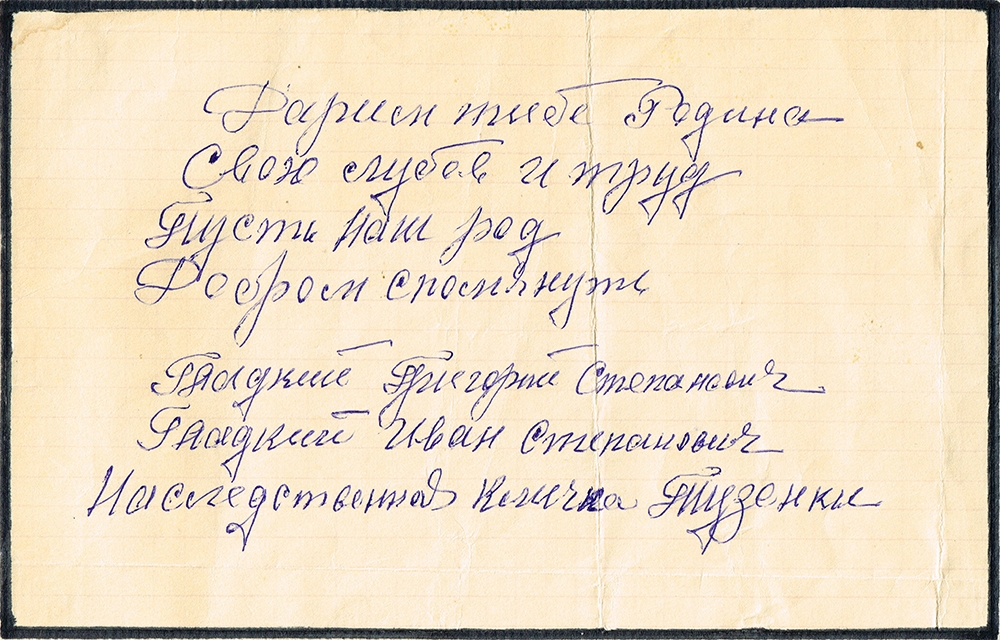 Дарим тибе Родина
Свою лубов и труд
Пусть наш род
Добром спомянуть
Гладкий Григорий Степанович
Гладкий Иван Степанович
Наследственная кличка Пузенки